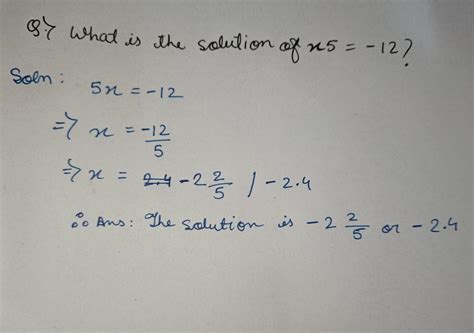 Q⇒ What is the solution of x5 = -12?
Soln:
5x = -12
⇒ x = -12/5
⇒ x = 2.4 -2 2/5 / -2.4
∴ Ans: The solution is -2 2/5 or -2.4